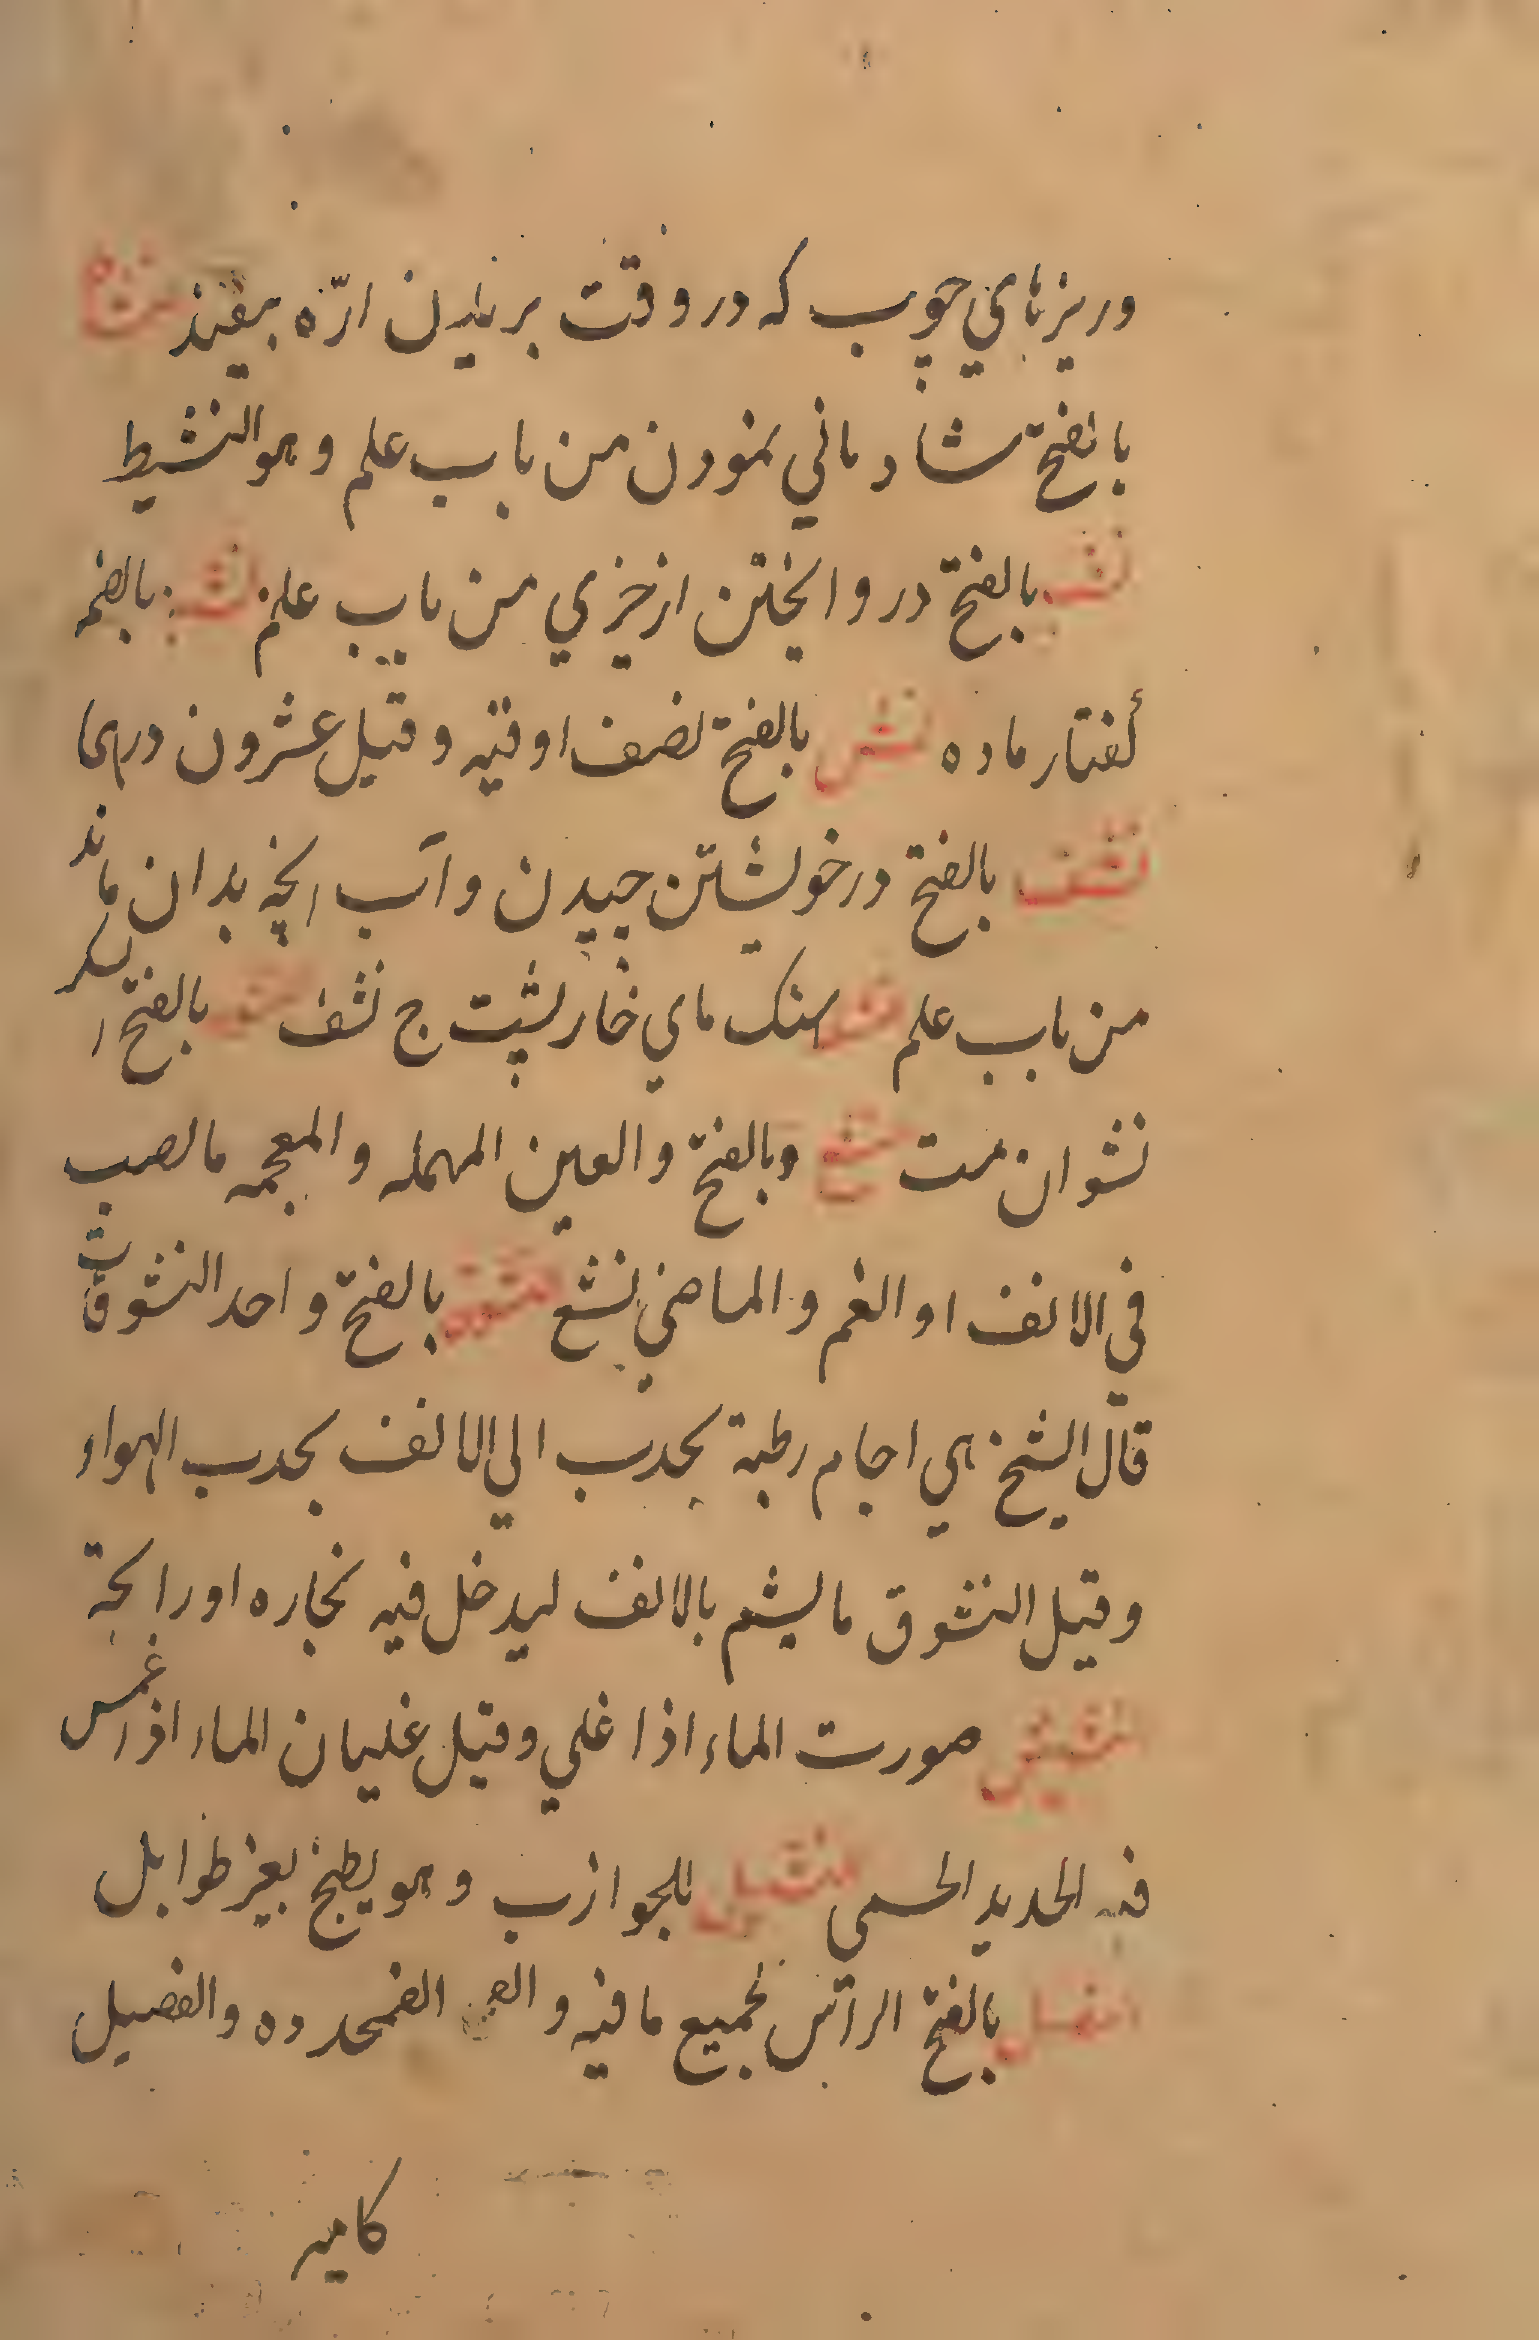 وريزهاي چوب كه در وقت بريدن ارّه بيفتد نشاط
بالفتح شادماني نمودن من باب علم وهو النشيط
بالفتح در وا يختن از چيزي من باب علم بالضم
كفتار ماده نش بالفتح نصف اوقيه وقيل عشرون درهما
نشف بالفتح در خويشتن چيدن وآب انچه بدان ماند
من باب علم سنك پاي خار پشت ج نشف بالفتح
نشوان مست نشغ وبالفتح والعين المهمله والمعجمه مايصب
في الانف او الفم والماضي نشع بالفتح واحد النشوقات
قال الشيخ هي اجام رطبة يجدب الي الانف بجدب الهواء
وقيل النشوق مايشم بالانف ليدخل فيه بخاره او رايحة
نشيش صورت الماء اذا غلي وقيل غليان الماء اذا غمس
فيه الحديد الحمي نشيل للجواذب وهو يطبخ بغير طوابل
نصيل بالفتح الراس لجميع مافيه و القمحدوه والفصيل
كامير